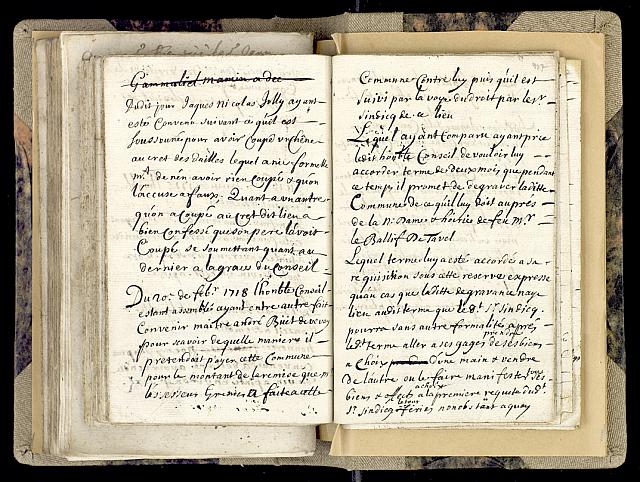 Gammaliel mamin a dee
dudit jour Jaques nicolas Jolly ayant
estés Convenu suivant ce qu'il est
soussonné pour avoir Coupé un chêne
au cret des dailles lequel a nie formelle
mt de n'en avoir rien Coupés & qu'on
l'accuse a faux. Quant a un autre
qu'on a Coupé au cret dit lieu a
bien Confessé que son pere l'avoit
Coupé se soumettant quant au
dernier a la grace du Conseil
Du 20e de febr 1718 lhonble Conseil
estant assemblés ayant entre autre fait
Convenir maitre andré Büet de vevey
pour scavoir de quelle maniere il
pretendoit payer cette Commune
pour le montant de la remise que m
lassesseur Grenier a faite a cette
Commune Contre luy puis qu'il est
suivi par la voye du droit par le sr
sindicq de ce lieu
Lequel ayant Comparu ayant prie
ledit honble Conseil de vouloir luy
accorder terme de deux mois que pendant
ce temps il promet de degraver laditte
Commune de ce qu'il luy doit aupres
de la Ne Dame & hoiries de feu Mr
le Ballif De Tavel
Lequel terme luy a estés accordés a sa
requisition sous cette reserve expresse
quau cas que laditte degravance naye
lieu audit terme que le dt sr sindicq
pourra sans autre formalités apres
ledt terme aller a ses gages de ses biens
prendre
a Choix d'une main & vendre
de l'autre ou les faire manifester tous ses
biens & a choix a la premiere requiste dudt
sr sindicq feries nonobstant a quoy